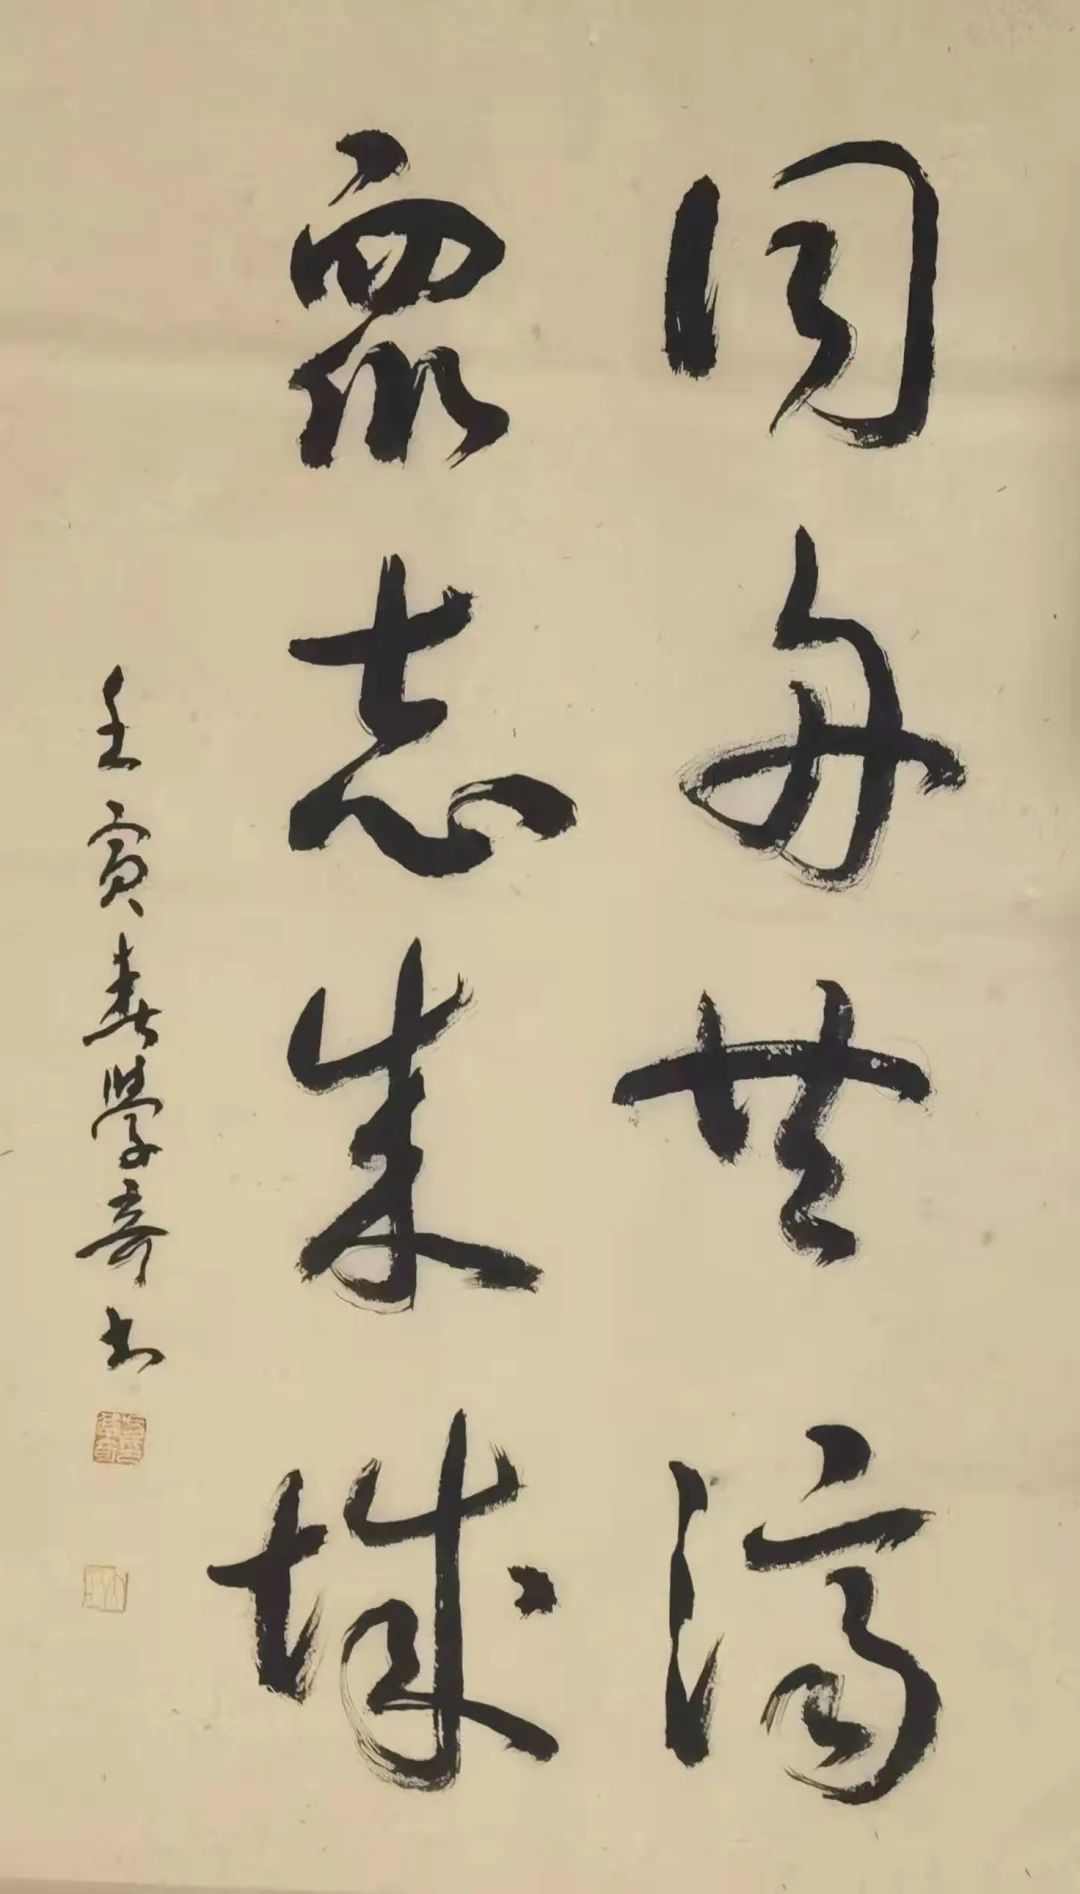 同舟共濟
眾志成城
壬寅春學奇書